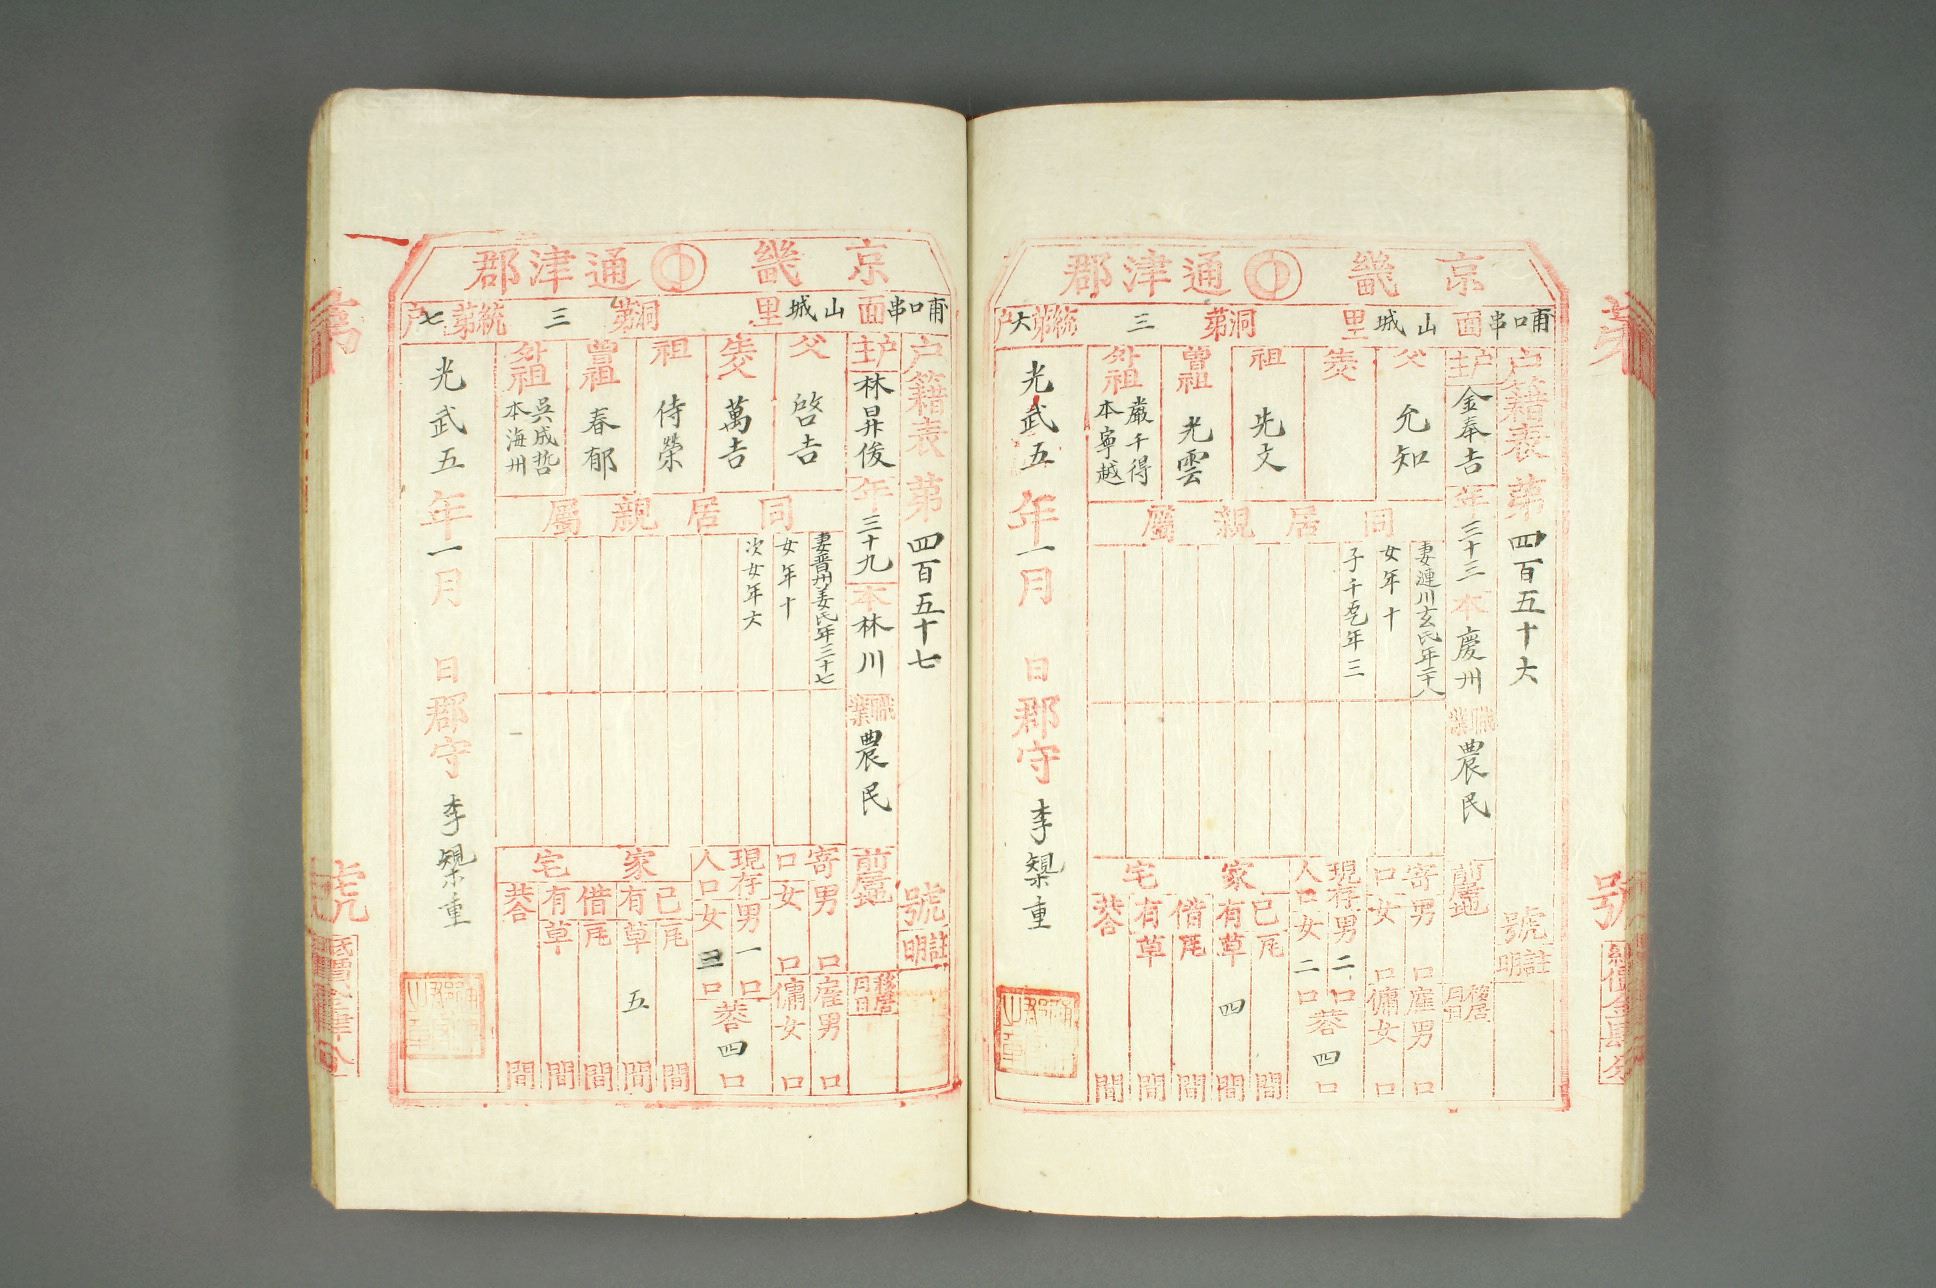 京畿 通津郡
甫口串面 山城里 洞第三統第六户
户籍表 第四百五十六號 註明
户主 金奉吉 年三十三 本慶州 職業 農民 前居地 移居月日
父 允知
生父
祖 光文
曾祖 光雲
外祖 嚴千得 本寧越
同居親屬
妻漣川玄氏年二十八
女年十
子千乭年三
寄口 男 口 女 口
雇男 口 傭女 口
現存人口 男二口 女二口 共四口
家宅
己有 瓦 間
草四間
借有 瓦 間
草 間
共合 間
光武五年一月 日郡守 李榘重
京畿 通津郡
甫口串面 山城里 洞第三統第七户
户籍表 第四百五十七號 註明
户主 林昇俊 年三十九 本林川 職業 農民 前居地 移居月日
父 啓吉
生父 萬吉
祖 侍榮
曾祖 春郁
外祖 吳成哲 本海州
同居親屬
妻晋州姜氏年三十七
女年十
次女年六
寄口 男 口 女 口
雇男 口 傭女 口
現存人口 男一口 女三口 共四口
家宅
己有 瓦 間
草五間
借有 瓦 間
草 間
共合 間
光武五年一月 日郡守 李榘重